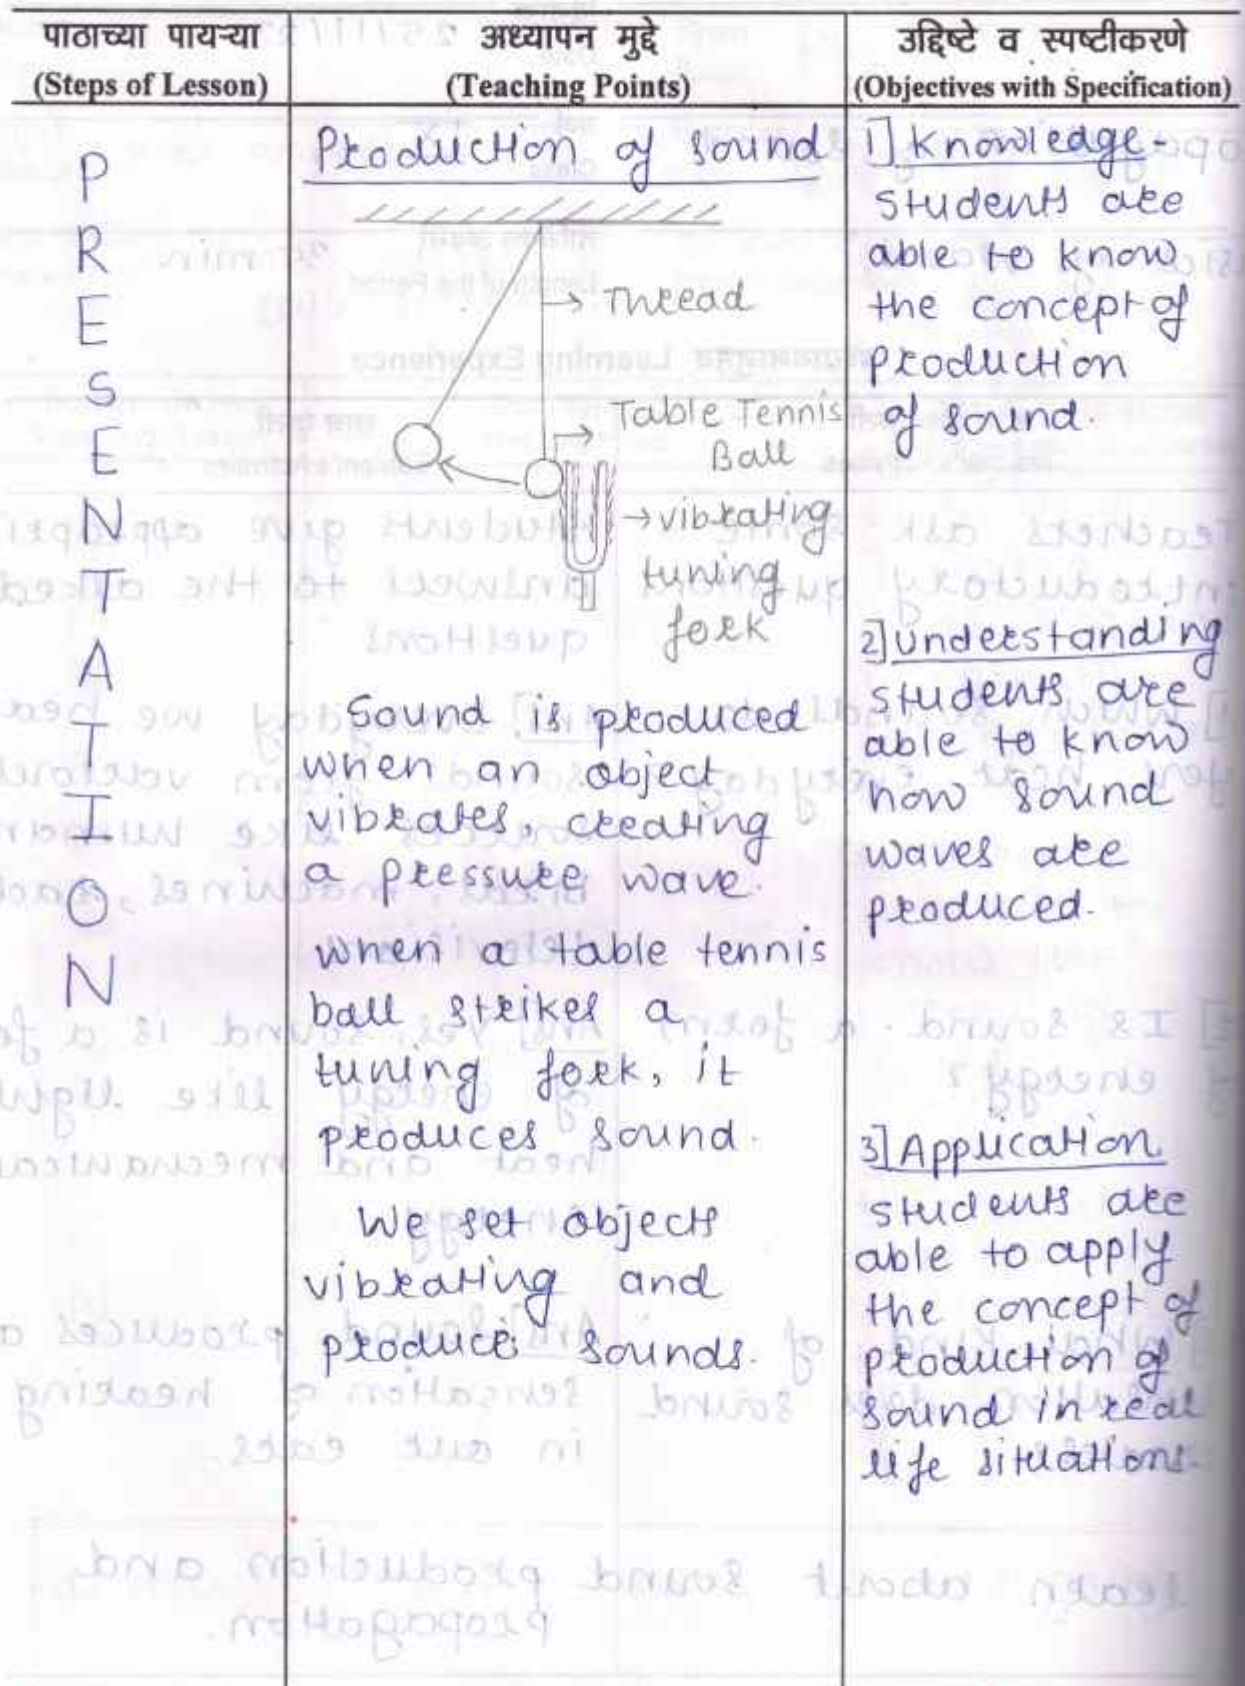 पाठाच्या पायऱ्या
(Steps of Lesson)
अध्यापन मुद्दे
(Teaching Points)
उद्दिष्टे व स्पष्टीकरणे
(Objectives with Specification)
P
R
E
S
E
N
T
A
T
I
O
N
Production of sound
Thread
Table Tennis
Ball
vibrating
tuning
fork
Sound is produced
when an object
vibrates, creating
a pressure wave.
when a table tennis
ball strikes a
tuning fork, it
produces sound.
We set objects
vibrating and
produce sounds.
1] Knowledge-
students are
able to know
the concept of
production
of sound.
2] understanding
students are
able to know
how sound
waves are
produced.
3] Application
students are
able to apply
the concept of
production of
sound in real
life situations.